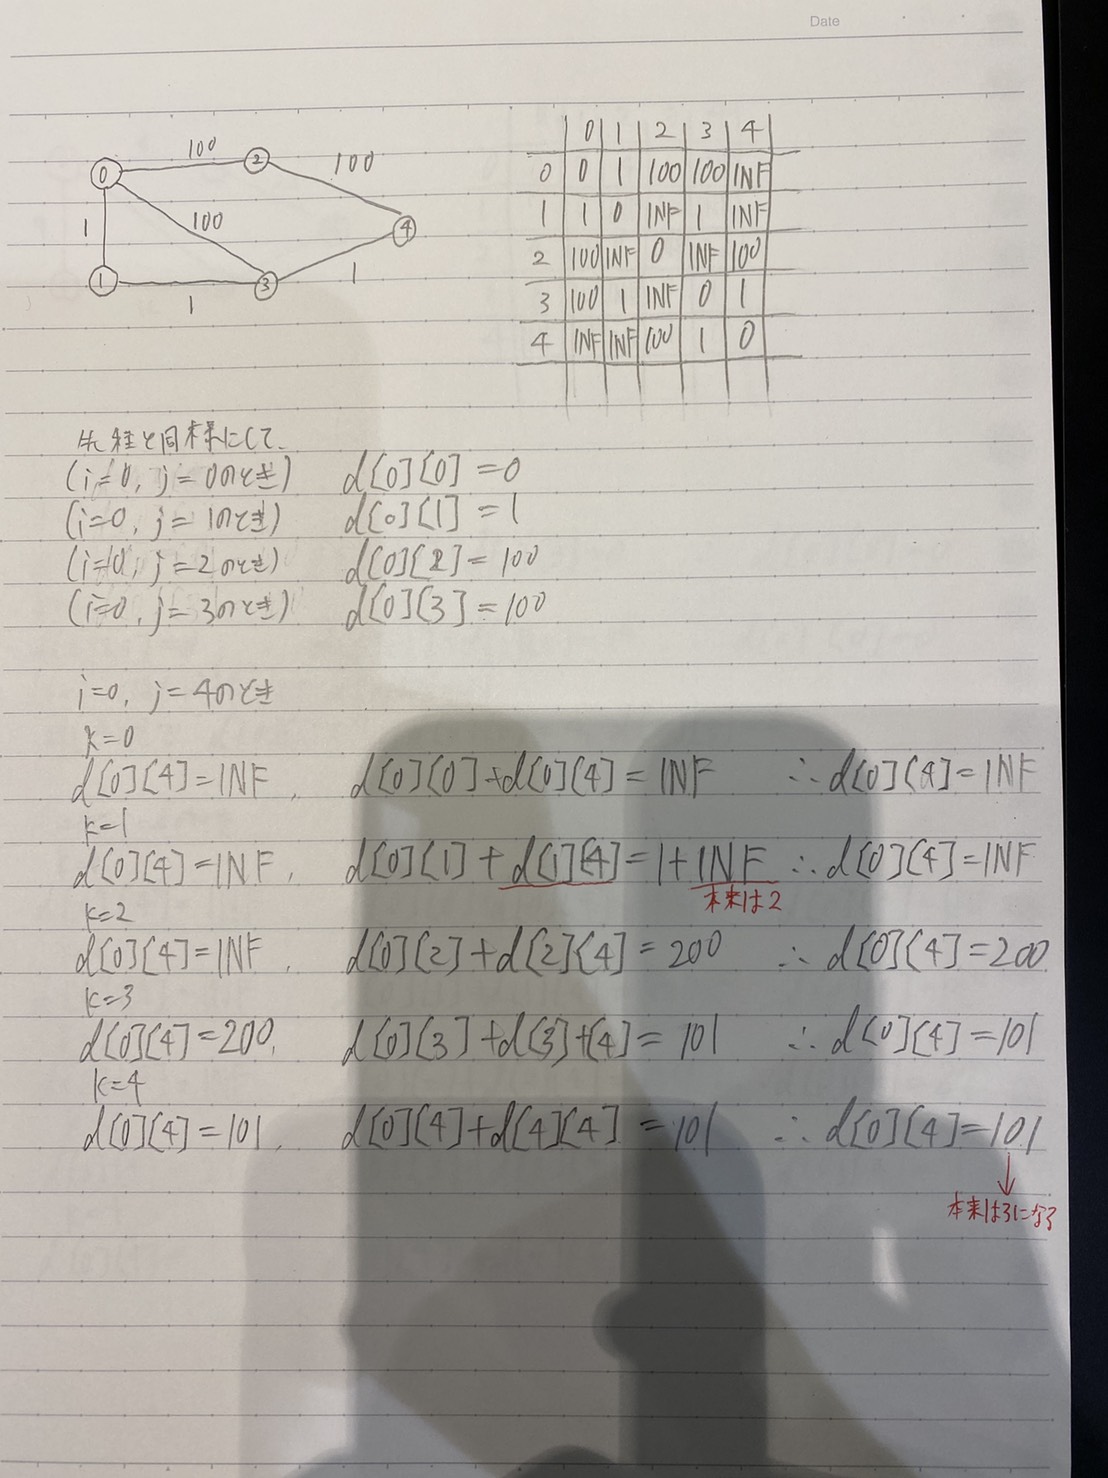 Date
100
0
2
100
1
100
4
1
3
1
1
0 1 2 3 4
0 0 1 100 100 INF
1 1 0 INF 1 INF
2 100 INF 0 INF 100
3 100 1 INF 0 1
4 INF INF 100 1 0
先程と同様にして、
(i=0, j=0のとき) d[0][0]=0
(i=0, j=1のとき) d[0][1]=1
(i=0, j=2のとき) d[0][2]=100
(i=0, j=3のとき) d[0][3]=100
i=0, j=4のとき
k=0
d[0][4]=INF, d[0][0]+d[0][4]=INF ∴d[0][4]=INF
k=1
d[0][4]=INF, d[0][1]+d[1][4]=1+INF ∴d[0][4]=INF
本来は2
k=2
d[0][4]=INF, d[0][2]+d[2][4]=200 ∴d[0][4]=200
k=3
d[0][4]=200, d[0][3]+d[3]+[4]=101 ∴d[0][4]=101
k=4
d[0][4]=101, d[0][4]+d[4][4]=101 ∴d[0][4]=101
↓
本来は3になる